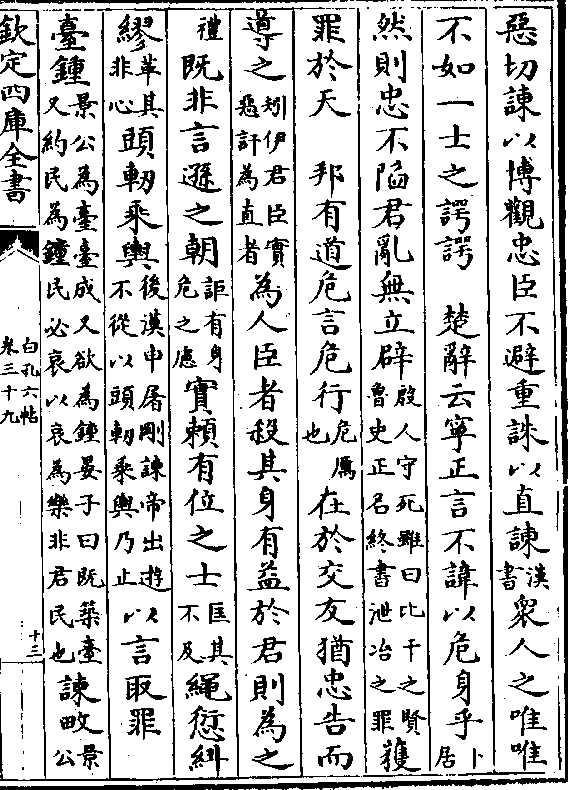 惡切諫以博觀忠臣不避重誅以直諫漢書衆人之唯唯
不如一士之諤諤　楚辭云寧正言不諱以危身乎卜居
然則忠不陷君亂無立辟殷人守死雖曰比干之賢魯史正名終書泄冶之罪獲
罪於天　邦有道危言危行危厲也在於交友猶忠告而
導之矧伊君臣實惡訐為直者為人臣者殺其身有益於君則為之
禮既非言遜之朝詎有身危之慮實賴有位之士匡其不及繩愆糾
繆革其非心頭軔乘輿後漢申屠剛諫帝出遊不從以頭軔乘輿乃止以言取罪
臺鍾景公為臺臺成又欲為鍾晏子曰既築臺又約民為鐘民必哀以哀為樂非君民也諫畋景公
欽定四庫全書
白孔六帖
卷三十九
十三